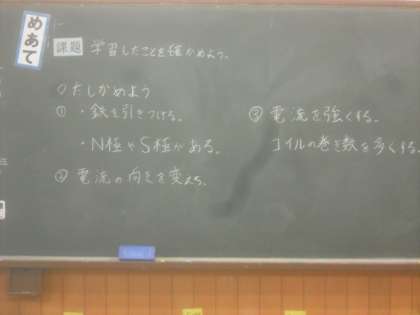 めあて
課題 学習したことを確かめよう。
○たしかめよう
①・鉄を引きつける。
・N極やS極がある。
②電流の向きを変える。
③電流を強くする。
コイルの巻き数を多くする。